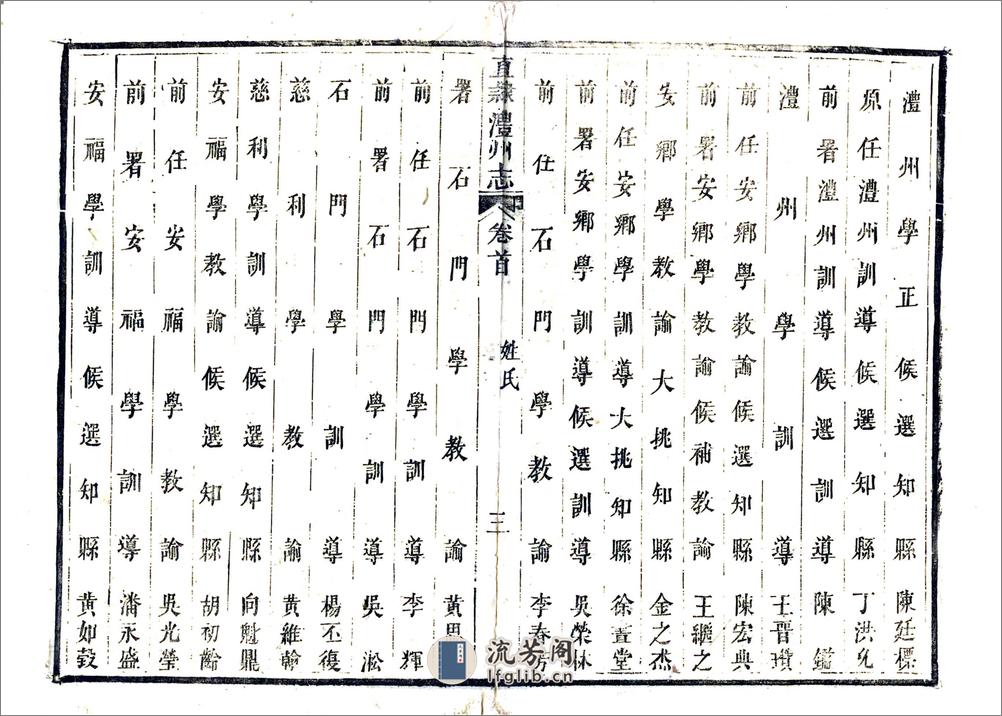 澧州學正候選知縣陳廷標
原任澧州訓導候選知縣丁洪
前署澧州訓導候選訓導陳
澧州學訓導王晋
前任安鄉學教諭候選知縣陳宏典
前署安鄉學教諭候補教諭王繼之
安鄉學教諭大挑知縣金之杰
前任安鄉學訓導大挑知縣徐萱堂
前署安鄉學訓導候選訓導吳榮林
前任石門學教諭李春
直隸澧州志 卷首 姓氏 三
署石門學教諭黃
前任石門學訓導李輝
前署石門學訓導吳淞
石門學訓導楊丕復
慈利學教諭黃維翰
慈利學訓導候選知縣向鼎
安福學教諭候選知縣胡初齡
前任安福學教諭吳光瑩
前署安福學訓導潘永盛
安福學訓導候選知縣黃如穀
流芳阁
lfglib.cn